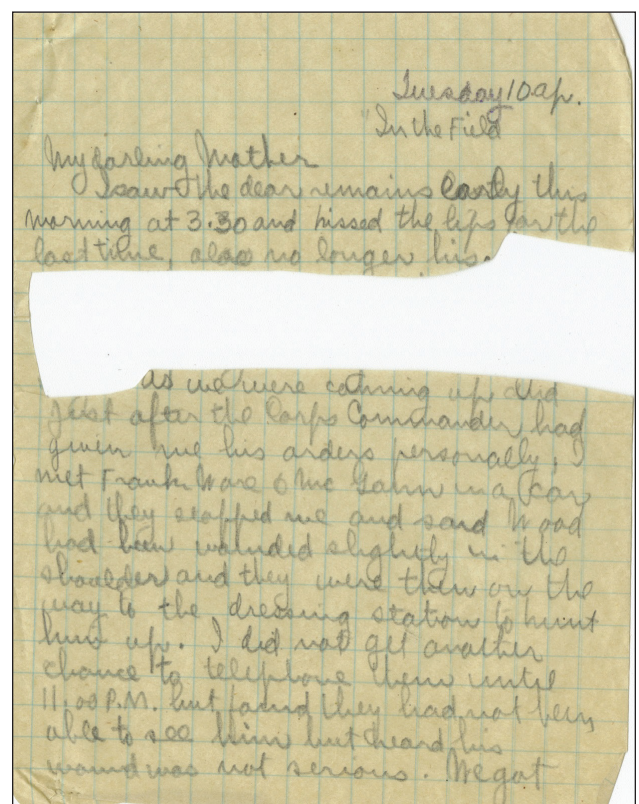 Tuesday 10 a.p.
"In the Field
My darling Mother
I saw the dear remains early this
morning at 3.30 and kissed the lips for the
last time, alas no longer his.
as we were coming up and
just after the Corps Commander had
given me his orders personally, I
met Frank Ware & McGann in a car
and they stopped me and said Wood
had been wounded slightly in the
shoulder and they were then on the
way to the dressing station to hunt
him up. I did not get another
chance to telephone them until
11.00 P.M. but found they had not been
able to see him but heard his
wound was not serious. We got